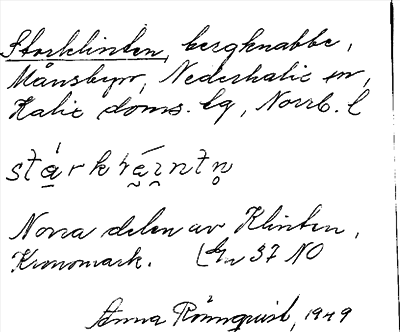 Storklinten, bergknabbe,
Månsbyn, Nederkalix sn,
Kalix doms. lg, Norrb. l
Norra delen av Klinten,
Kronomark. 37 NO
Anna Rönnqvist, 1949